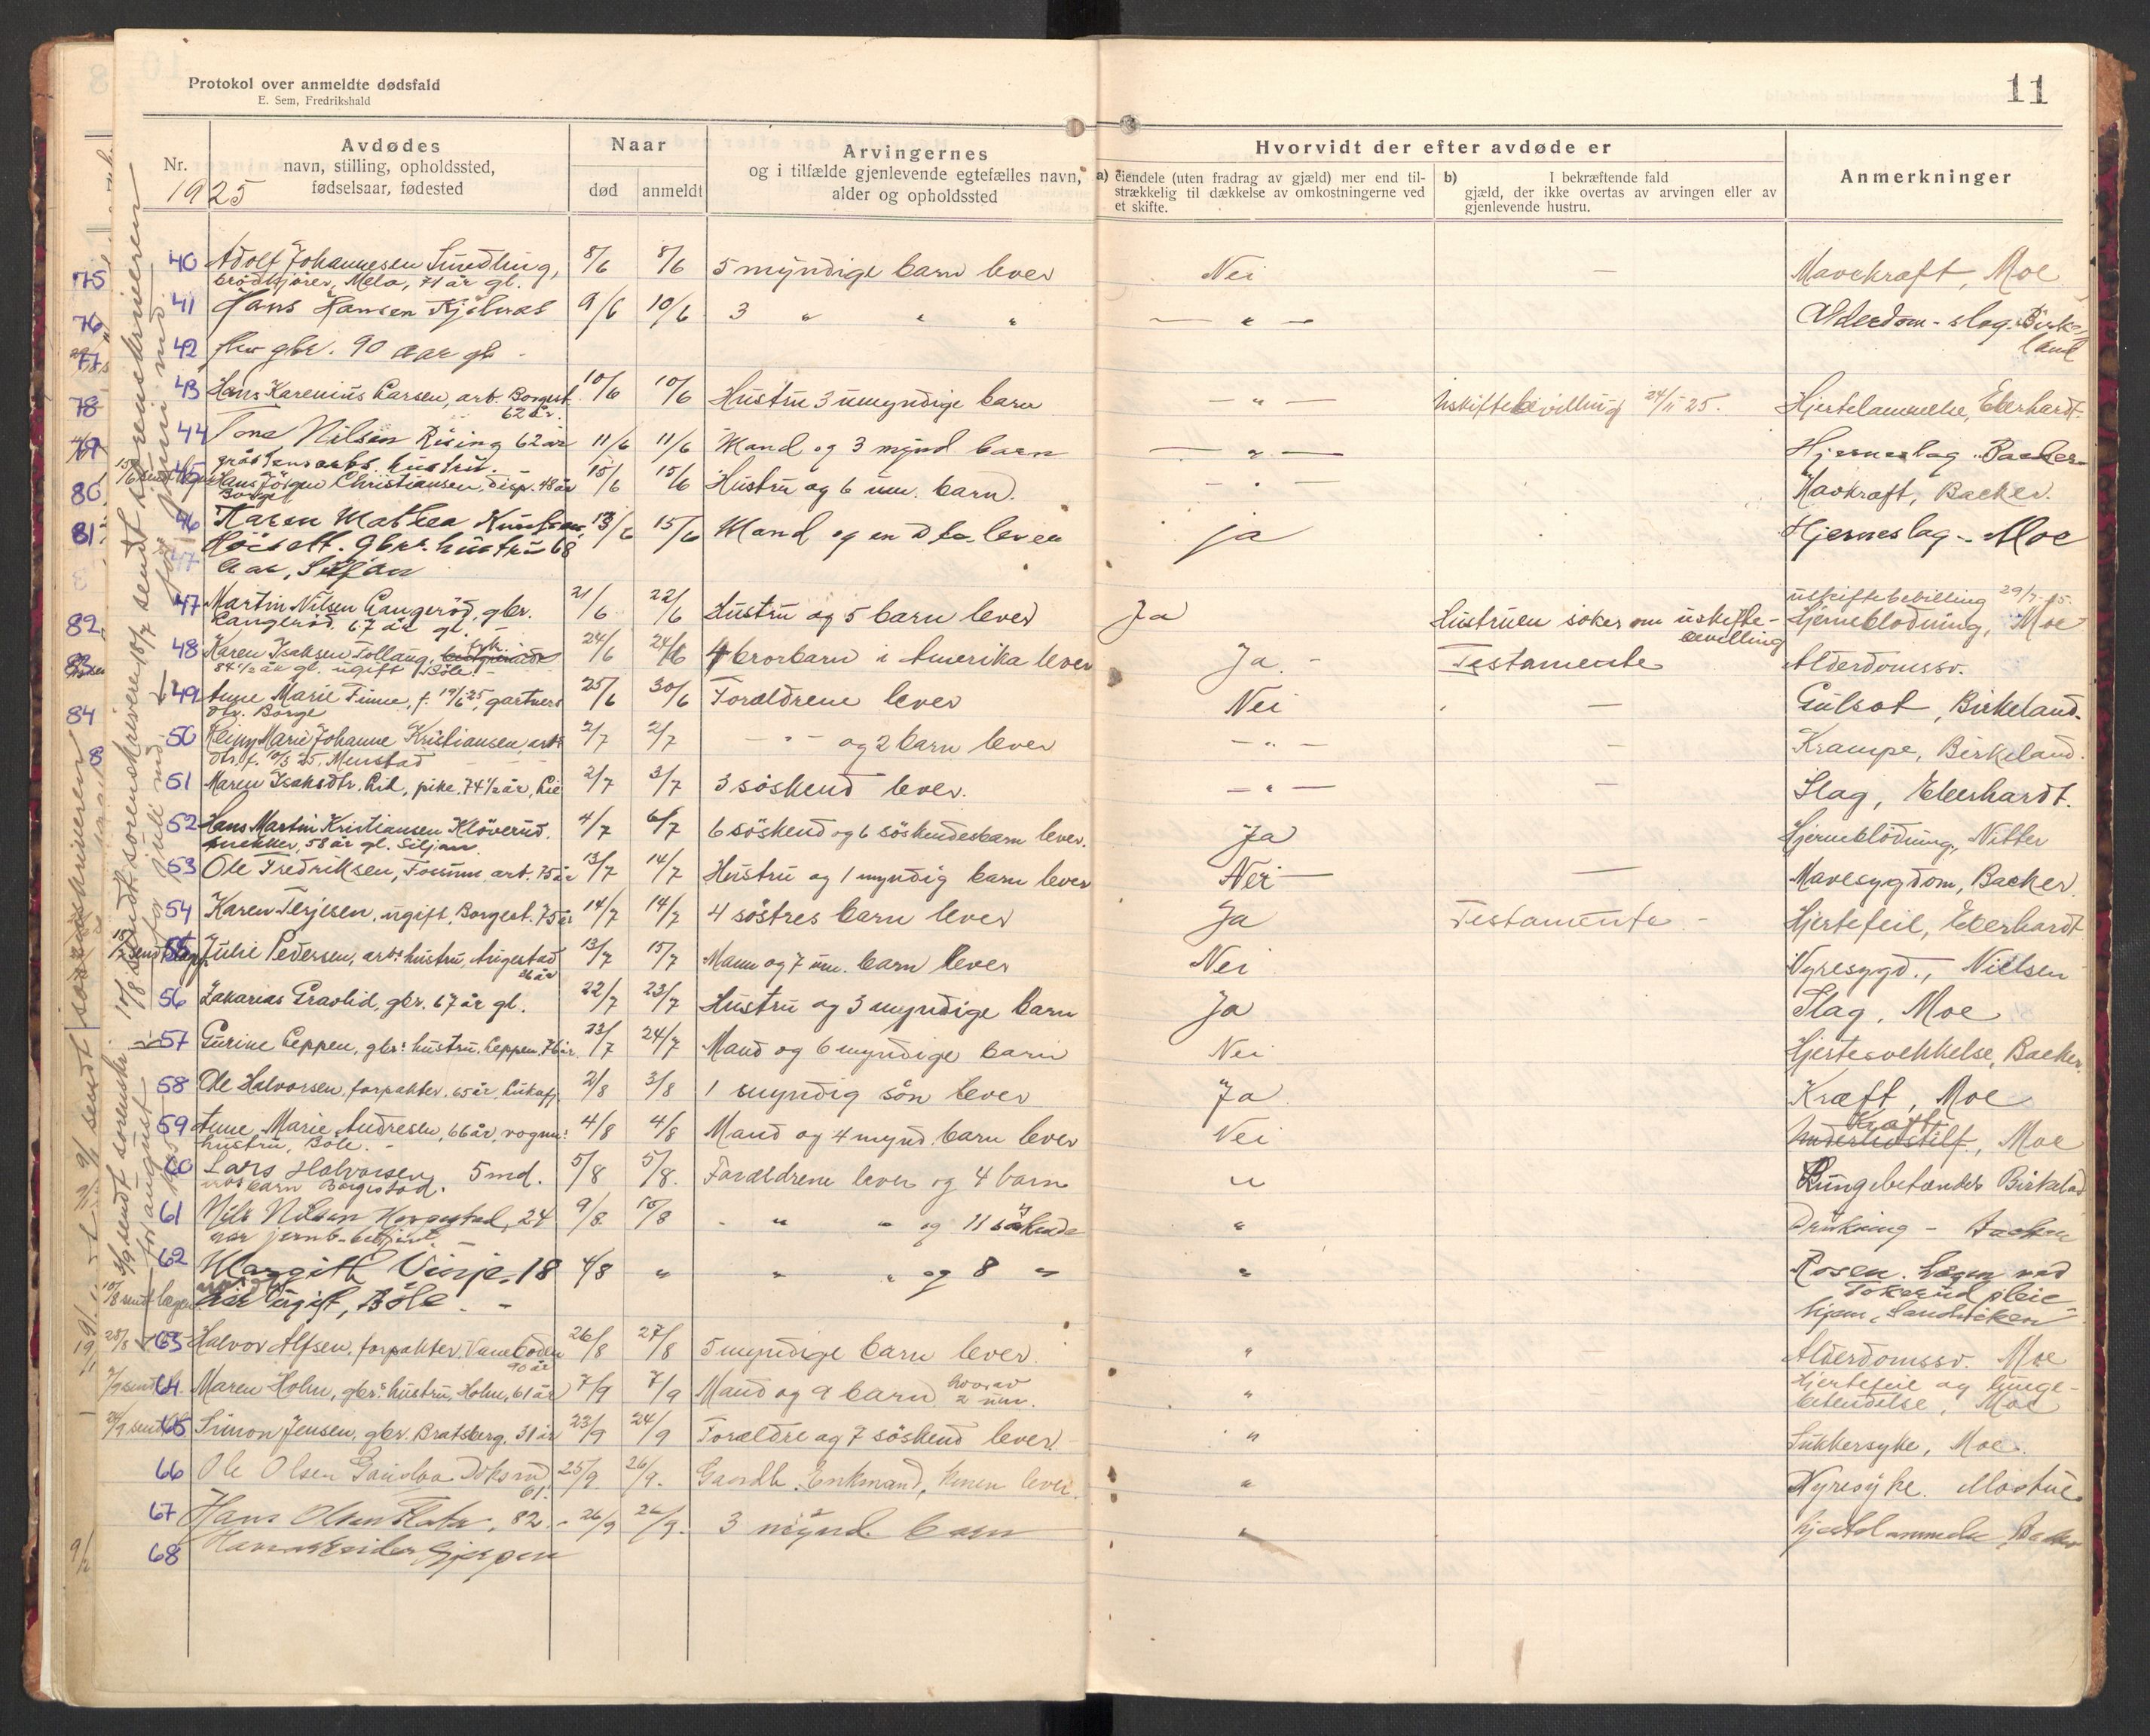 Protokol over anmeldte dødsfald
E. Sem, Fredrikshald
11
Nr.
1925
Avdødes
navn, stilling, opholdssted,
fødselsaar, fødested
Naar
død
anmeldt
Arvingernes
og i tilfælde gjenlevende egtefælles navn,
alder og opholdssted
Hvorvidt der efter avdøde er
a) eiendele (uten fradrag av gjæld) mer end til-
strækkelig til dækkelse av omkostningerne ved
et skifte.
b) I bekræftende fald
gjæld, der ikke overtas av arvingen eller av
gjenlevende hustru.
Anmerkninger
40 Adolf Johannesen 8/6 8/6 5 myndige barn lever Nei — Mavekræft, Moe
brödkjörer, Mela, 71 år gl.
41 Hans Hansen 9/6 10/6 3 " " " — " — Alderdom - slag. Birke-
land
42 gbr. 90 aar gl -
43 Hans Karenius Larsen, arb. Borgest. 10/6 10/6 Hustru 3 umyndige barn — " — Uskiftebevilling 24/11 25. Hjertelammelse, Eberhardt.
62 år.
44 Tone Nilsen Rising 62 år 11/6 11/6 Mand og 3 mynd barn — " — Hjerneslag. Backer
hustru.
45 Hans Jörgen Christiansen, disp. 48 år 15/6 15/6 Hustru og 6 um. barn. - " - Mavkræft, Backer.
Borge
46 Karen Mathea 13/6 15/6 Mand og en lever ja Hjerneslag - Moe
gbrs. hustru 68
aar, Siljan
uskiftebevilling 29/7-25.
47 Martin Nilsen Langeröd, gbr. 21/6 22/6 Hustru og 5 barn lever Ja Hustruen söker om uskifte- Hjerneblödning, Moe
Langeröd. 67 år gl. — bevilling
48 Karen Isaksen Follaug, 24/6 24/6 4 brorbarn i Amerika lever Ja - Testamente Alderdomssv.
84 1/2 år gl. ugift Böle.
49 Anne Marie Finne, f. 19/6 25, gartners 25/6 30/6 Forældrene lever Nei — Gulsot, Birkeland.
dtr. Borge
50 Marie Johanne Kristiansen, arbs 2/7 2/7 — " — og 2 barn lever — " — — Krampe, Birkeland.
dtr. f. 10/5 25. Menstad
51 Maren Isaksdtr. Lid, pike. 74 1/2 år, Lie 2/7 3/7 3 söskend lever. — " — — Slag, Eberhardt.
52 Hans Martin Kristiansen Klöverud. 4/7 6/7 6 söskend og 6 söskendesbarn lever. Ja Hjerneblödning, Nitter
snekker, 58 år gl. Siljan
53 Ole Fredriksen, Fossum, arb. 75 år 13/7 14/7 Hustru og 1 myndig barn lever Nei — — Mavesygdom, Backer
54 Karen Terjesen, ugift, Borgest. 75 år 14/7 14/7 4 söstres barn lever Ja Testamente - Hjertefeil, Eberhardt
55 Julie Pedersen, arbs hustru, Augestad 13/7 15/7 Mann og 7 um. barn lever Nei Nyresygd., Nielsen
36 år
56 Zakarias Gravlid, gbr. 67 år gl. 22/7 23/7 Hustru og 3 myndige barn Ja Slag, Moe
57 Gurine Leppen, gbrs hustru, Leppen. 76 år 23/7 24/7 Mand og 6 myndige barn Nei Hjertesvekkelse, Backer.
58 Ole Halvorsen, forpakter. 65 år, 2/8 3/8 1 myndig sön lever Ja Kræft, Moe
Kræft
59 Anne Marie Andresen, 66 år, vognm: 4/8 4/8 Mand og 4 mynd. barn lever Nei Underlivstilf., Moe
hustru, Böle. -
60 Lars Halvorsen 5 md. 5/8 5/8. Forældrene lever og 4 barn " Lungebetændels Birkeland
barn Borgestad.
61 Nils Nilsen 24 9/8 10/8 - " " og 11 söskende " Drukning - Backer
aar
62 Margith Vinje 18 4/8 " " " og 8 " " Rosen. Lægen ved
ugift, Böle. - pleie-
hjem, Sandviken
63 Halvor Alfsen, forpakter, 26/8 27/8 5 myndige barn lever. " Alderdomssv. Moe
90 år
64 Maren Holm, gbrs hustru, Holm, 61 år 7/9 7/9 Mand og 9 barn hvorav 2 um. " Hjertefeil og lunge-
betendelse, Moe
65 Simon Jensen, gbr. Bratsberg. 31 år 23/9 24/9 Forældre og 7 söskend lever. " Sukkersyke, Moe.
66 Ole Olsen 25/9 26/9. Enkmand, lever. " Nyresyke.
61.
67 Hans Olsen 82. - 26/9 26/9. 3 mynd. barn " Hjertelammelse Backer
68 Gjerpen
75
76
77
78
79
80
81
82
83
84